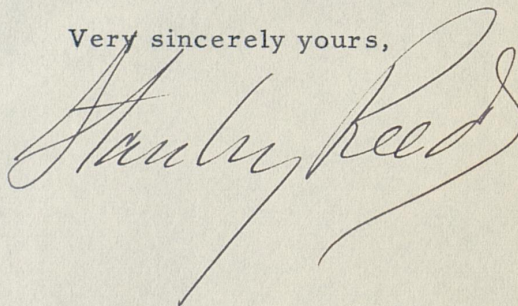 Very sincerely yours,
Stanley Reed